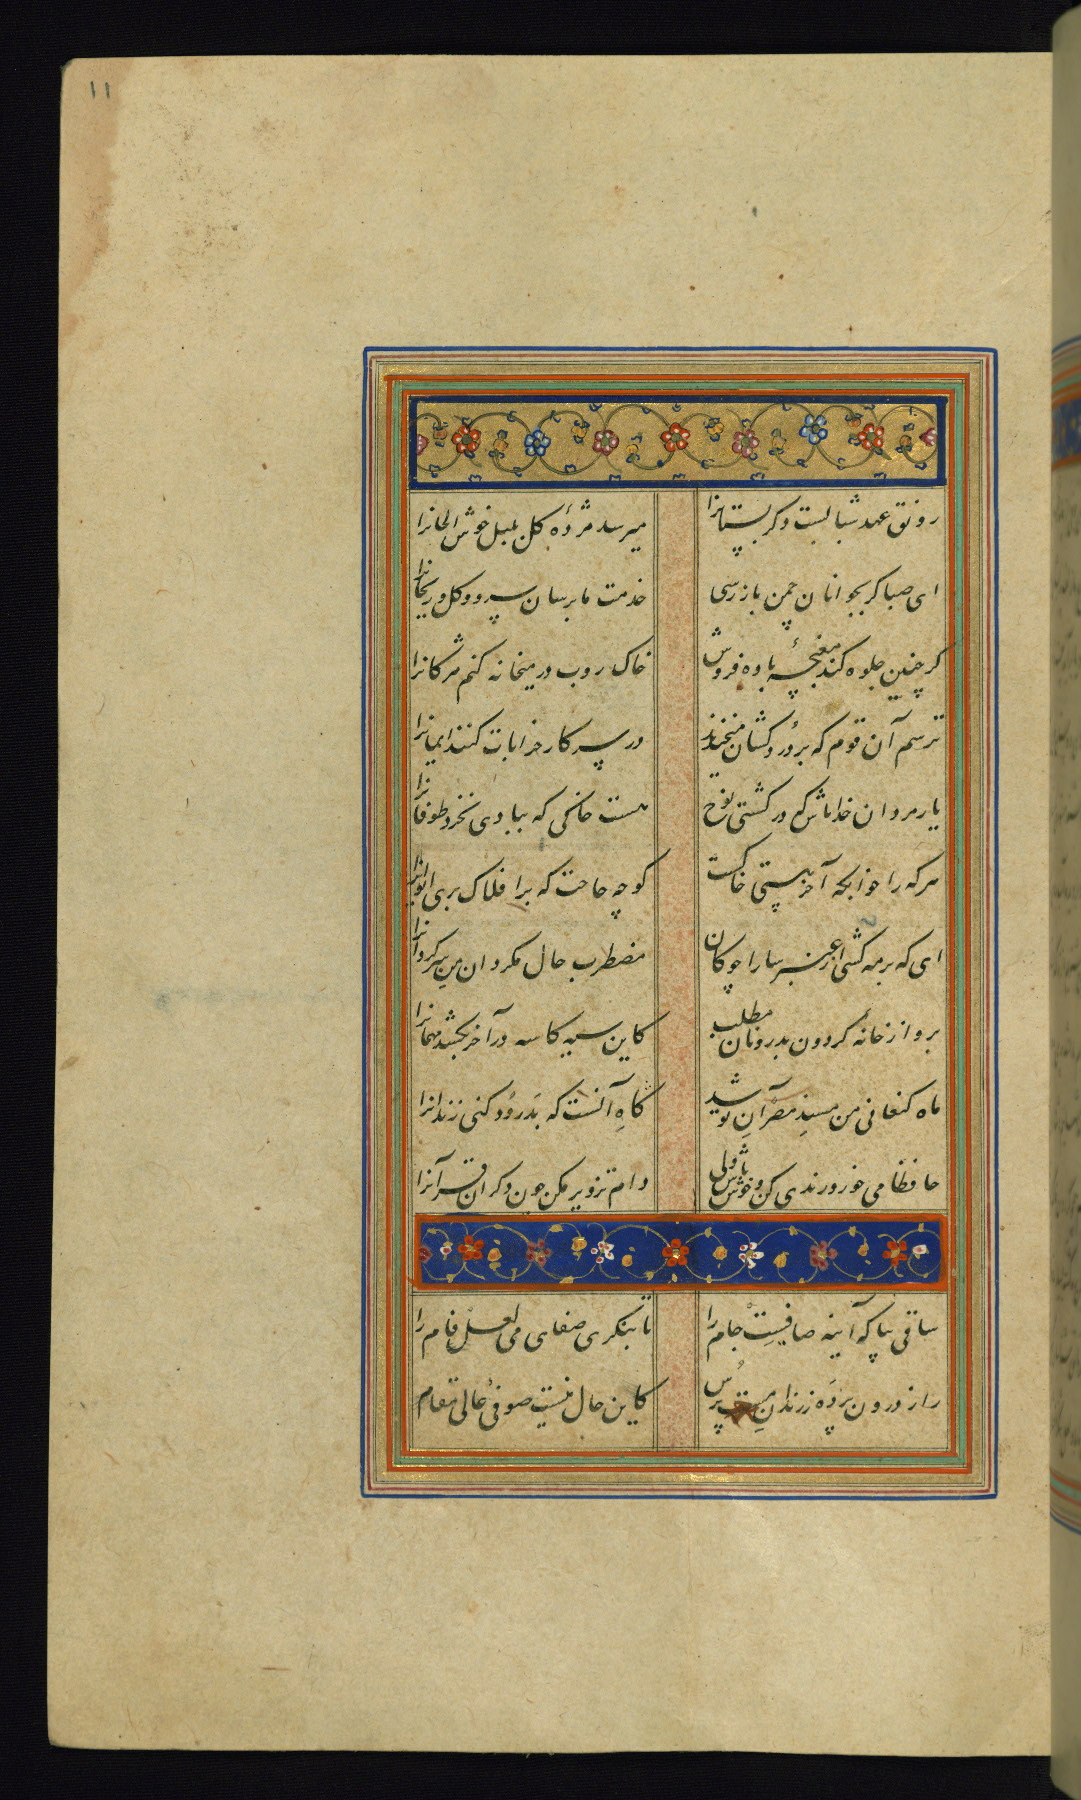 ۱۱
رونق عهد شبابست دکر بستانرا
میرسد مژدهٔ کل بلبل خوش الحانرا
ای صبا کر بجوانان چمن بازرسی
خدمت ما برسان سرو و کل و ریحانرا
کر چنین جلوه کند مغبچهٔ باده فروش
خاک روب در میخانه کنم مژکانرا
ای که بر مه کشی از عنبر سارا چوکان
مضطرب حال مکردان من سرکردانرا
ترسم آن قوم که بر دردکشان میخندند
در سر کار خرابات کنند ایمانرا
یار مردان خدا باش که در کشتی نوح
هست خاکی که بابی نخرد طوفانرا
هر که را خوابکه آخر بمشتی خاکست
کو چه حاجت که بر افلاک بری ایوانرا
برو از خانهٔ کردون بدر و نان مطلب
کاین سیه کاسه در آخر بکشد مهمانرا
ماه کنعانی من مسند مصر آن تو شد
کاه آنست که بدرود کنی زندانرا
حافظا می خور و رندی کن و خوش باش ولی
دام تزویر مکن چون دکران قرآنرا
ساقی بیا که آینه صافیست جام را
تا بنکری صفای می لعل فام را
راز درون پرده ز رندان مست پرس
کاین حال نیست صوفی عالی مقام